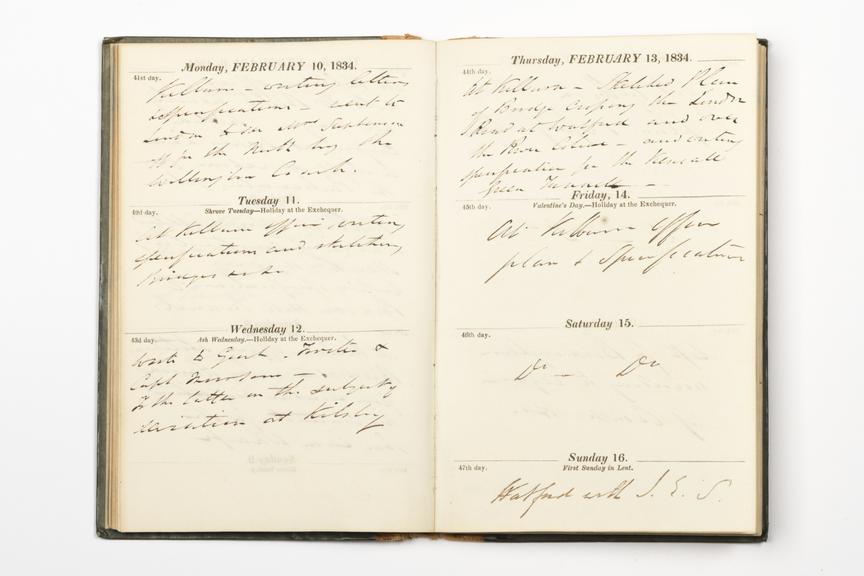 Monday, FEBRUARY 10, 1834.
41st day.
Kilburn – writing letters
specifications – went to
London to see Mrs Stephenson
off for the North by the
Wellington Coach.
Tuesday 11.
Shrove Tuesday.—Holiday at the Exchequer.
42d day.
At Kilburn office writing
specifications and sketching
Bridges &c &c
Wednesday 12.
Ash Wednesday.—Holiday at the Exchequer.
43d day.
Wrote to &
Capt –
To the latter on the subject of
at Kilsby
Thursday, FEBRUARY 13, 1834.
44th day.
At Kilburn – Sketched Plan
of Bridge crossing the London
Road at Watford and over
the River Colne – and writing
specification for the
Green Tunnel –
Friday, 14.
Valentine's Day.—Holiday at the Exchequer.
45th day.
At Kilburn office
plan & Specification
Saturday 15.
46th day.
Do – Do
Sunday 16.
First Sunday in Lent.
47th day.
Watford with J. E. S.